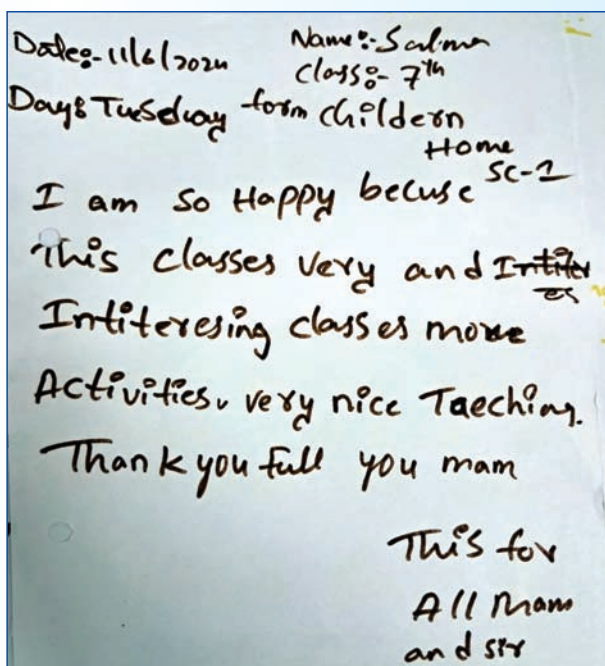 Date:- 11/6/2024
Name:- Salma
Class:- 7th
Day: Tuesday
form childern
Home
SC-1
I am so Happy becuse
This classes very and Intiter
es
Intiteresing classes more
Activities, very nice Taeching.
Thank you full you mam
This for
All Mam
and sir